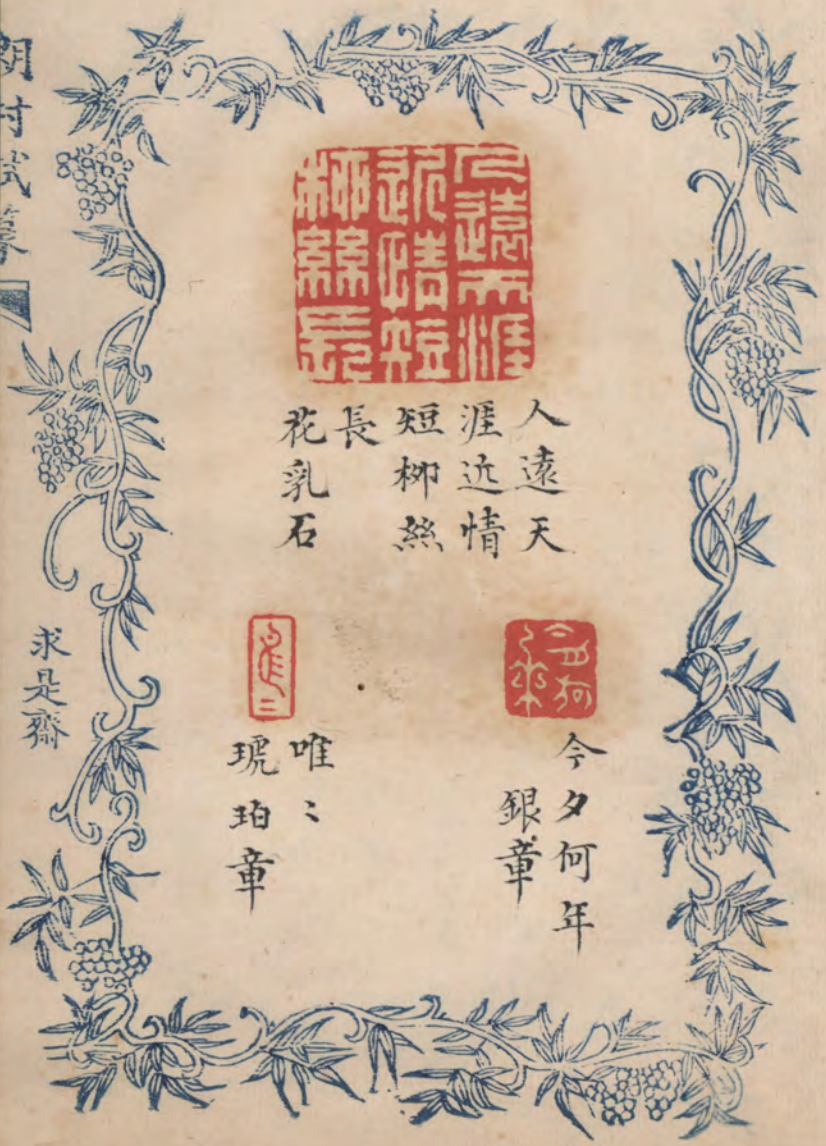 人遠天涯
近情短
柳絲長
人遠天
涯近情
短柳絲
長
花乳石
今夕何年
今夕何年
銀章
唯二
唯〻
琥珀章
求是齋
試篆